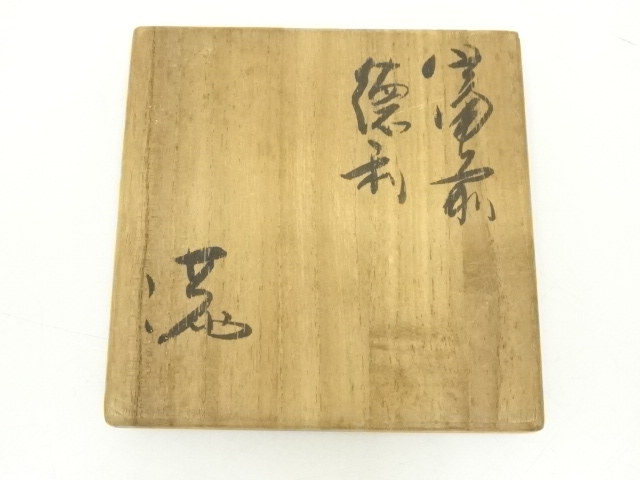 備前
徳利